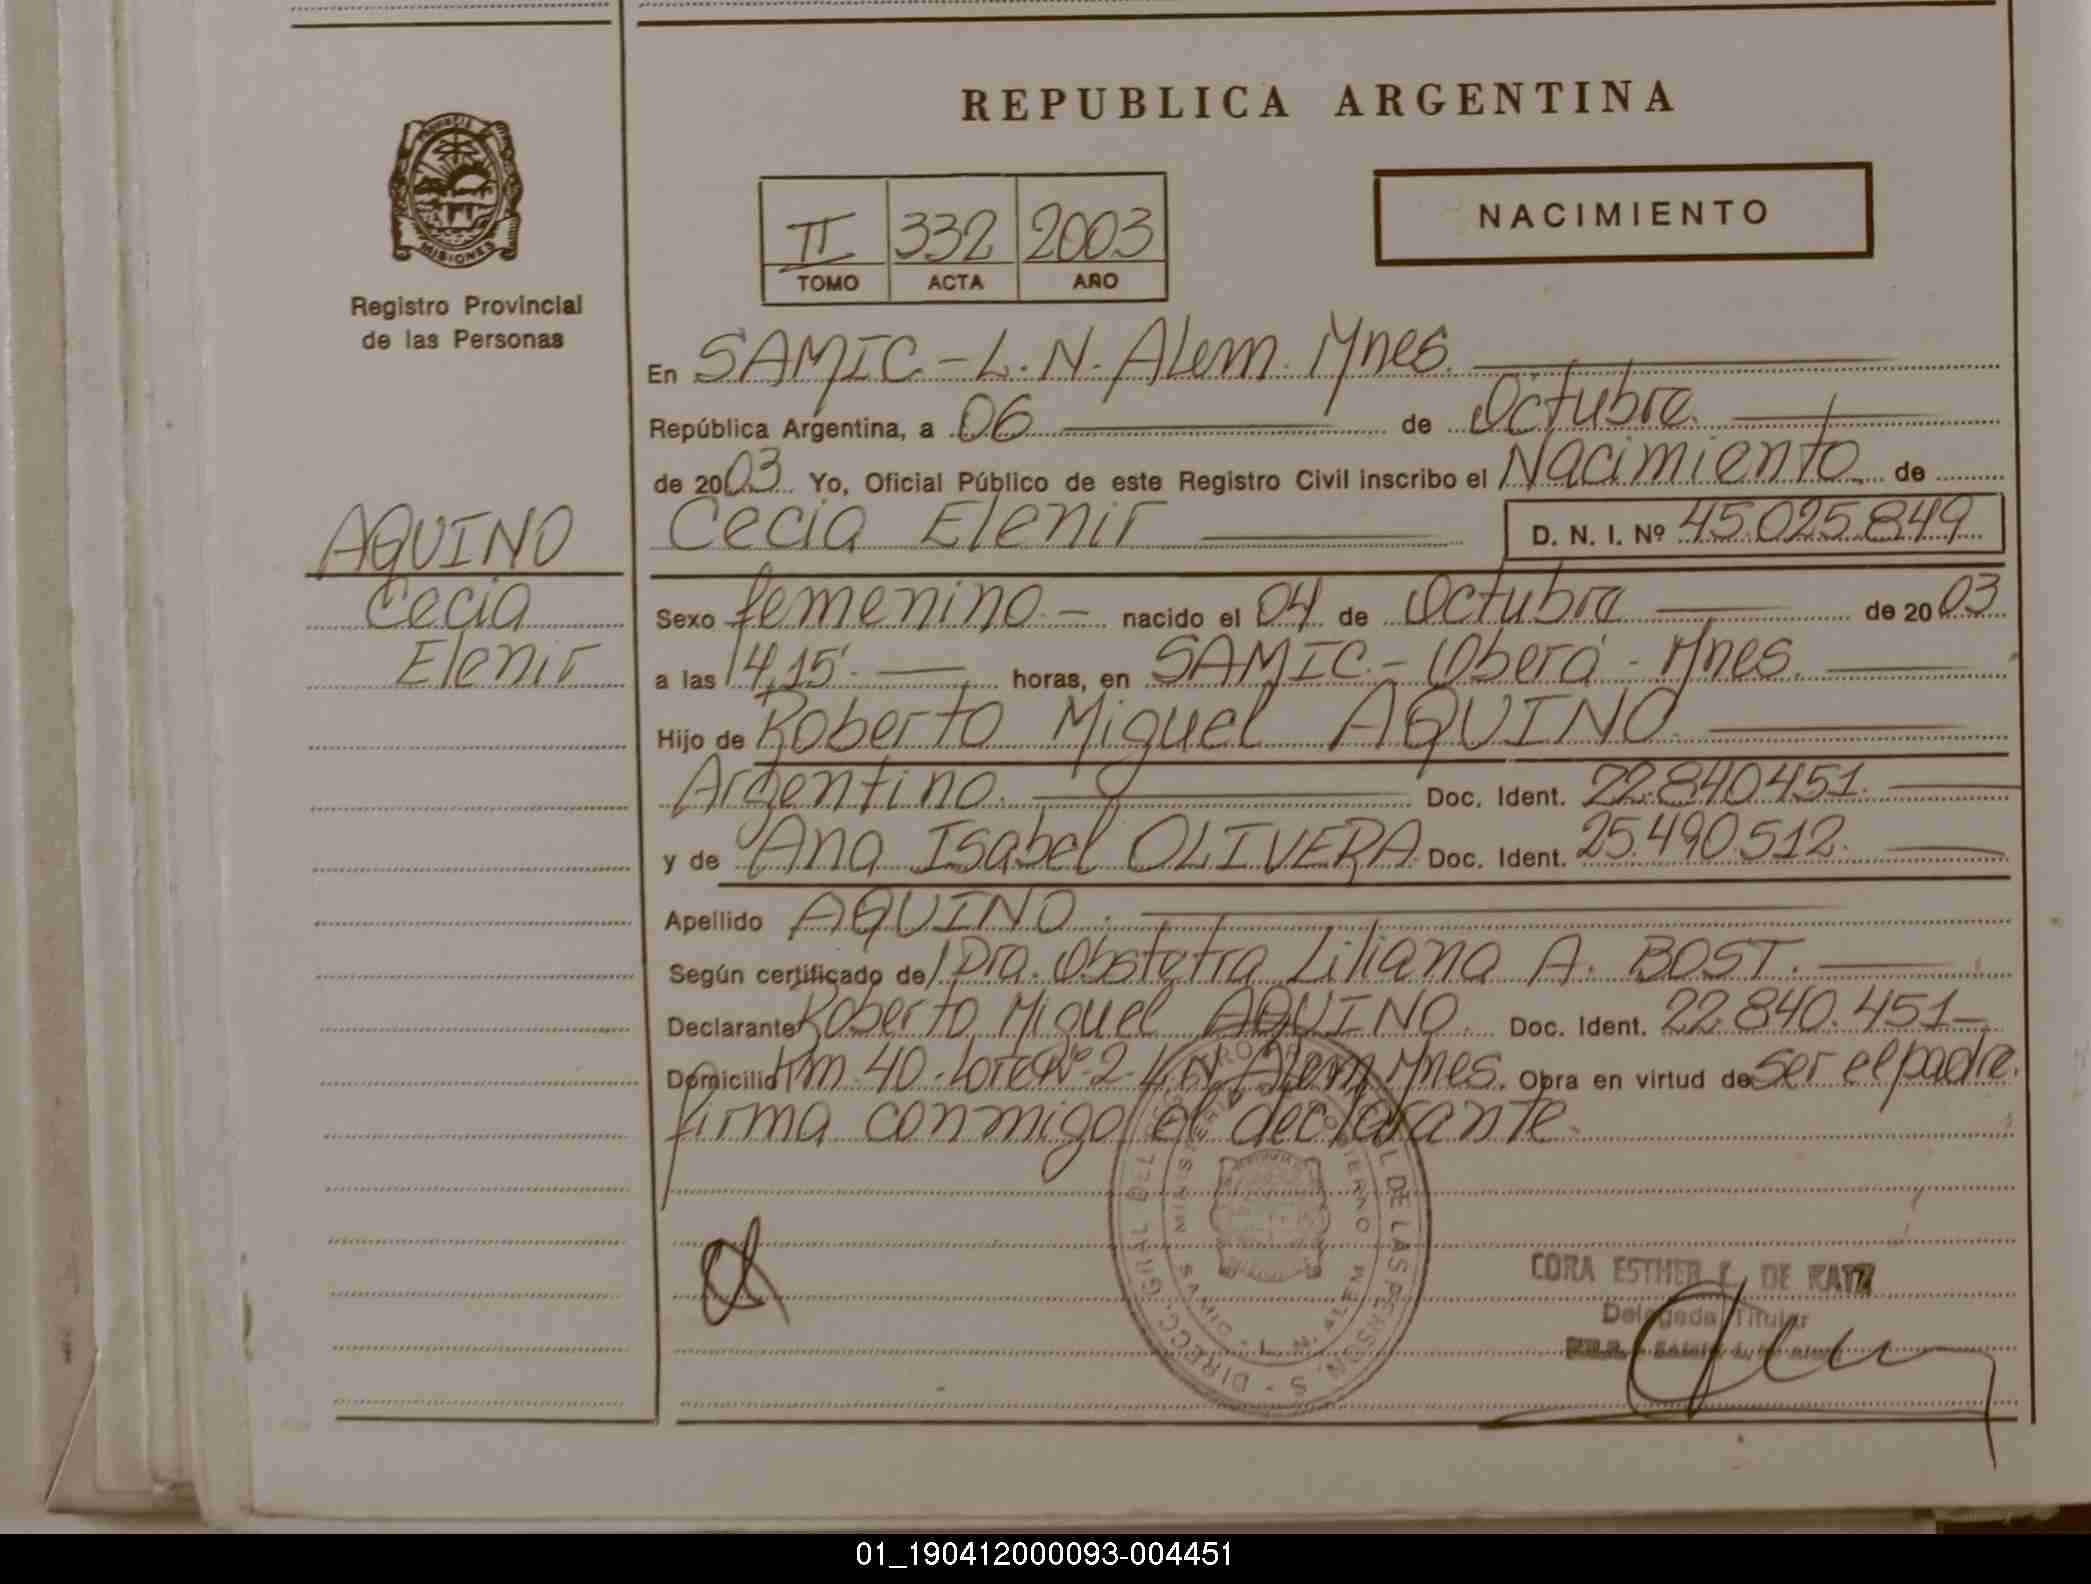 REPUBLICA ARGENTINA
PROVINCIA
MISIONES
Registro Provincial
de las Personas
II 332 2003
TOMO ACTA AÑO
NACIMIENTO
En SAMIC - L. N. Alem. Mnes.
República Argentina, a 06 de Octubre.
de 2003 Yo, Oficial Público de este Registro Civil inscribo el Nacimiento de
AQUINO
Cecia
Elenir
Cecia Elenir D. N. I. Nº 45.025.849
Sexo femenino.- nacido el 04 de Octubre de 2003
a las 14,15'. horas, en SAMIC.- Oberá - Mnes.
Hijo de Roberto Miguel AQUINO
Argentino. Doc. Ident. 22.840451.
y de Ana Isabel OLIVERA Doc. Ident. 25.490.512.
Apellido AQUINO.
Según certificado de Dra. Obstetra Liliana A. BOST.
Declarante Roberto Miguel AQUINO. Doc. Ident. 22.840.451-
Domicilio Km. 40. Lote Nº 2. L. N. Alem Mnes. Obra en virtud de ser el padre.
firma conmigo el declarante.
DE LAS PERSON
L. N. ALEM
CORA ESTHER DE KATZ
Delegada Titular
01_190412000093-004451